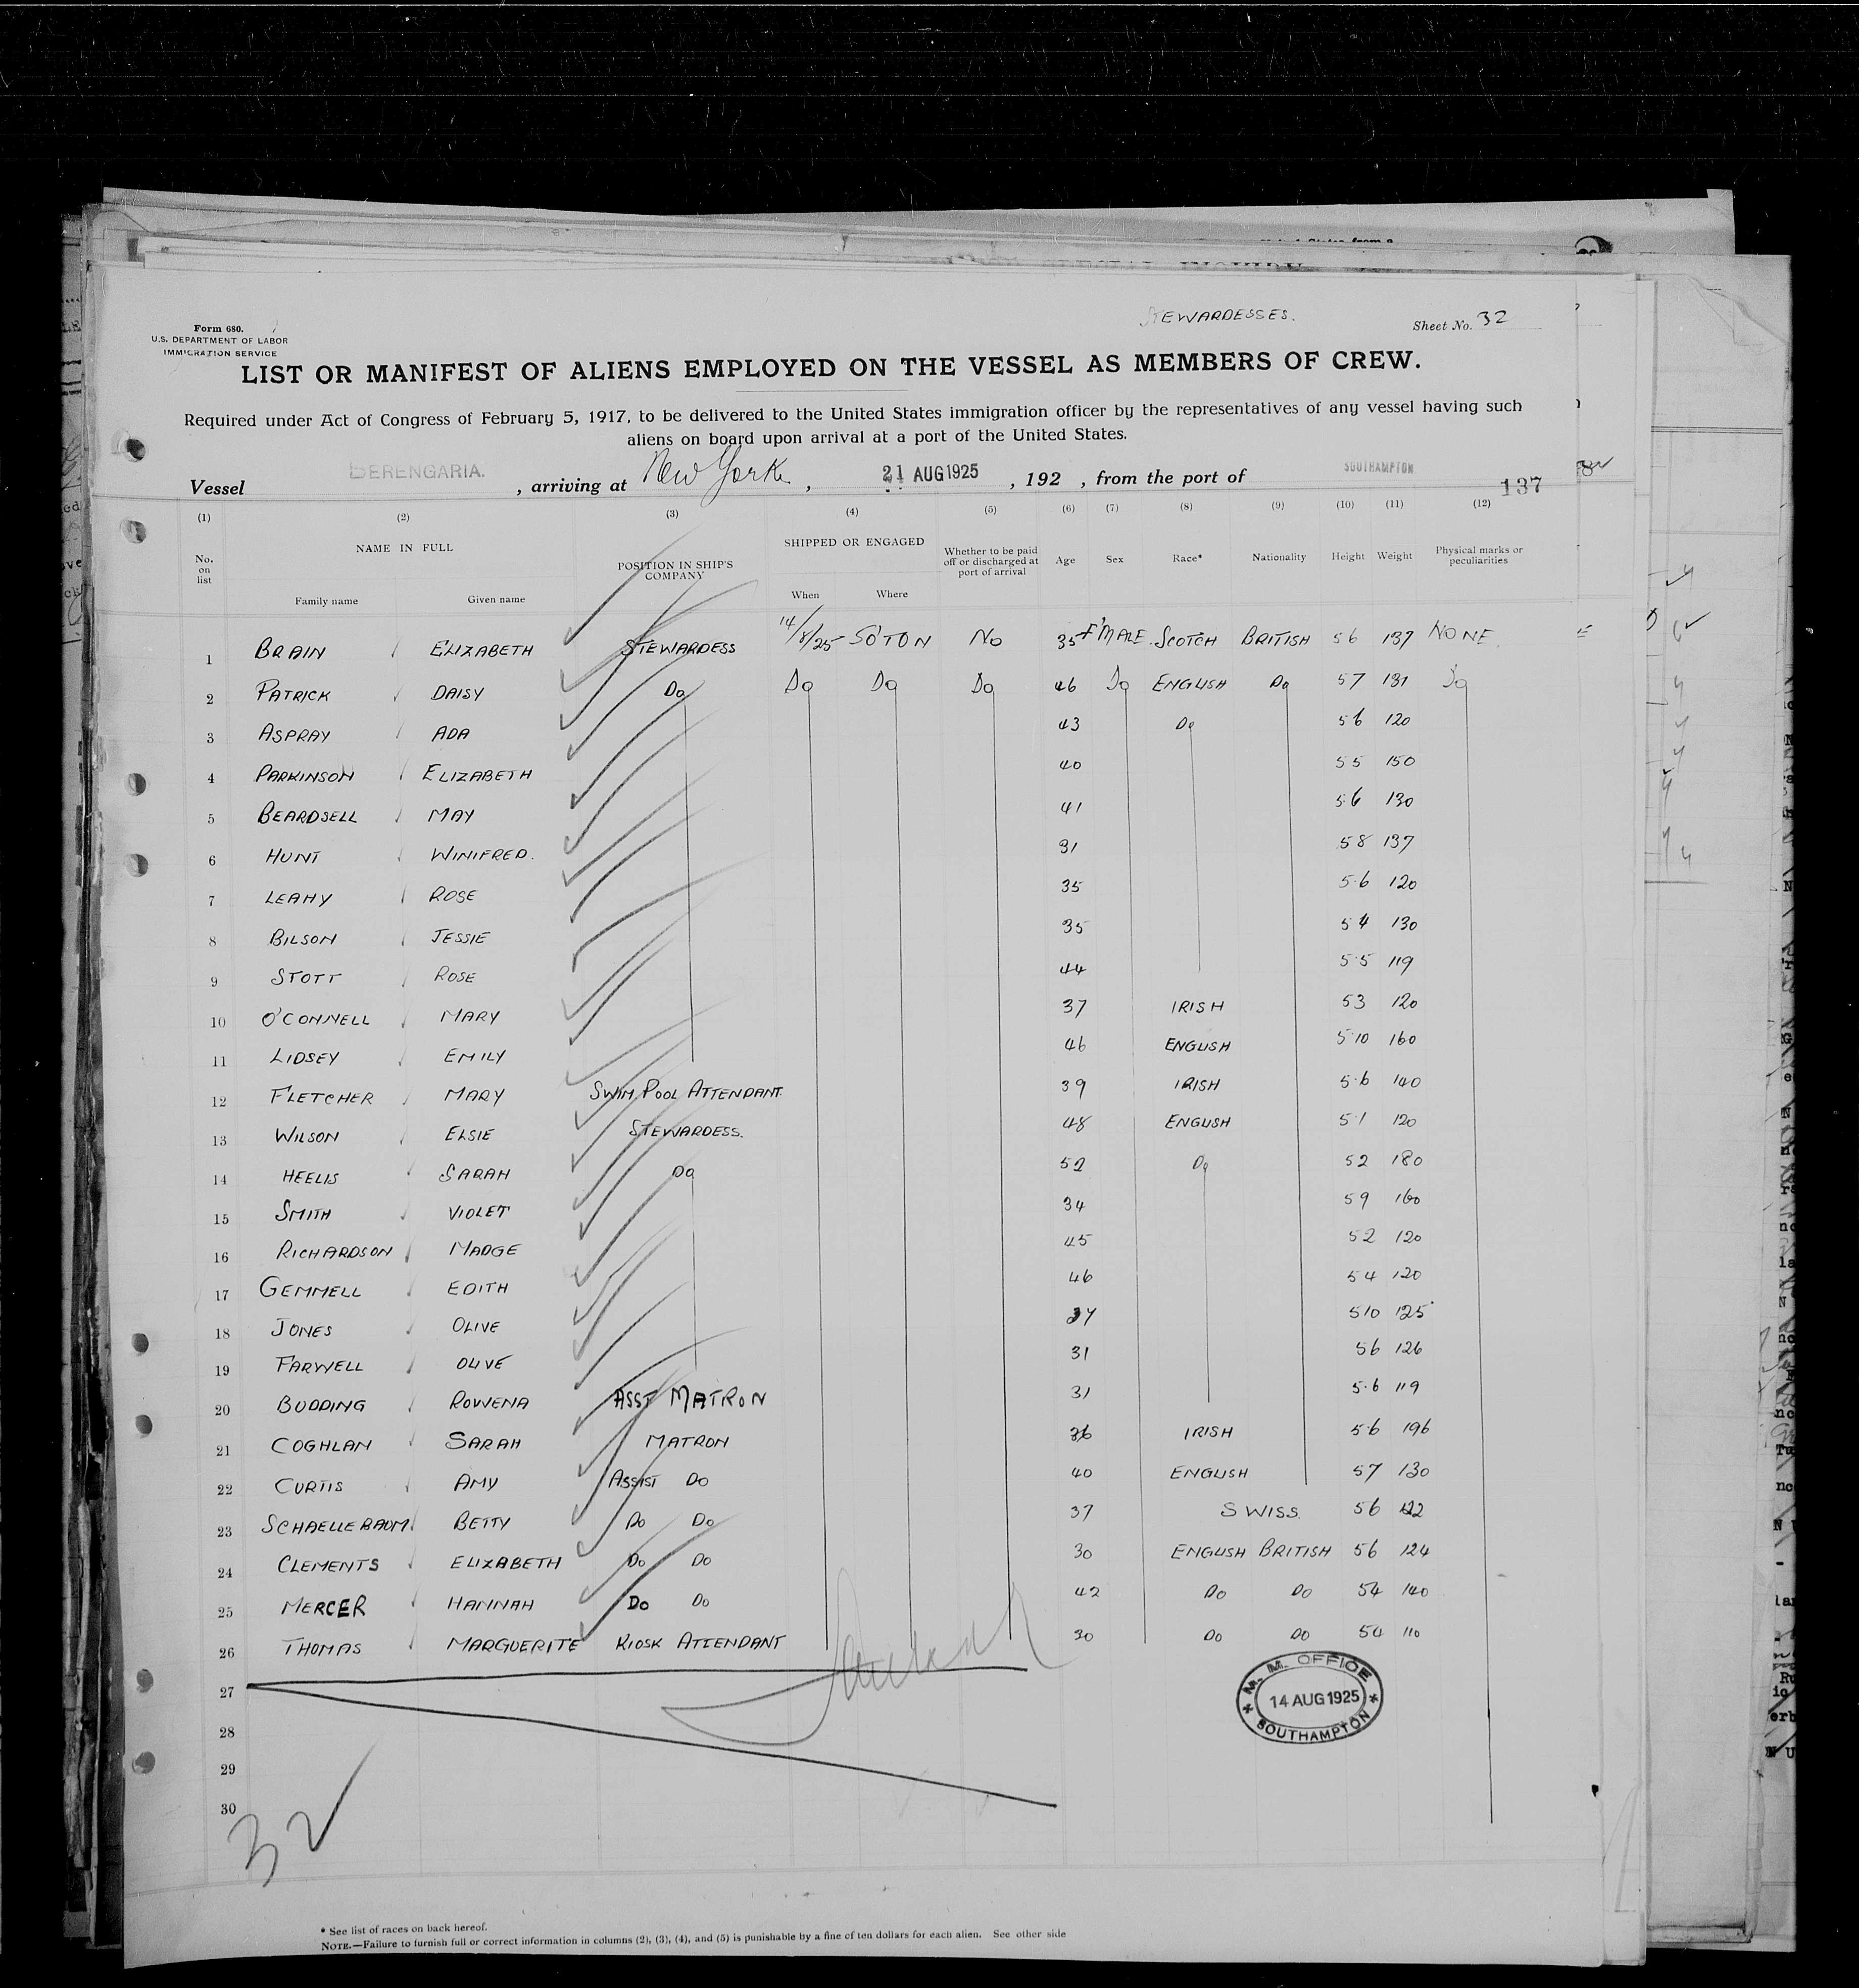 STEWARDESSES.
Form 680.
U.S. DEPARTMENT OF LABOR
IMMIGRATION SERVICE
Sheet No. 32
LIST OR MANIFEST OF ALIENS EMPLOYED ON THE VESSEL AS MEMBERS OF CREW.
Required under Act of Congress of February 5, 1917, to be delivered to the United States immigration officer by the representatives of any vessel having such
aliens on board upon arrival at a port of the United States.
Vessel BERENGARIA. , arriving at New York , 21 AUG 1925 , 192 , from the port of SOUTHAMPTON
137
(1) (2) (3) (4) (5) (6) (7) (8) (9) (10) (11) (12)
No. on list NAME IN FULL Family name Given name POSITION IN SHIP'S COMPANY SHIPPED OR ENGAGED When Where Whether to be paid off or discharged at port of arrival Age Sex Race* Nationality Height Weight Physical marks or peculiarities
1 BRAIN ELIZABETH STEWARDESS 14/8/25 SO'TON No 35 F'MALE SCOTCH BRITISH 5 6 137 NONE
2 PATRICK DAISY Do Do Do Do 46 Do ENGLISH Do 5 7 131 Do
3 ASPRAY ADA 43 Do 5 6 120
4 PARKINSON ELIZABETH 40 5 5 150
5 BEARDSELL MAY 41 5.6 130
6 HUNT WINIFRED. 31 5 8 137
7 LEAHY ROSE 35 5.6 120
8 BILSON JESSIE 35 5 4 130
9 STOTT ROSE 44 5.5 119
10 O'CONNELL MARY 37 IRISH 5 3 120
11 LIDSEY EMILY 46 ENGLISH 5 10 160
12 FLETCHER MARY SWIM POOL ATTENDANT 39 IRISH 5.6 140
13 WILSON ELSIE STEWARDESS. 48 ENGLISH 5 1 120
14 HEELIS SARAH Do 52 Do 5 2 180
15 SMITH VIOLET 34 5 9 160
16 RICHARDSON MADGE 45 5 2 120
17 GEMMELL EDITH 46 5 4 120
18 JONES OLIVE 5 10 125
19 FARWELL OLIVE 31 5 6 126
20 BUDDING ROWENA ASST MATRON 31 5.6 119
21 COGHLAN SARAH MATRON 36 IRISH 5.6 196
22 CURTIS AMY ASSIST DO 40 ENGLISH 5 7 130
23 SCHAELLEBAUM BETTY DO DO 37 SWISS. 5 6 122
24 CLEMENTS ELIZABETH DO DO 30 ENGLISH BRITISH 5 6 124
25 MERCER HANNAH DO DO 42 DO DO 5 4 140
26 THOMAS MARGUERITE KIOSK ATTENDANT 30 DO DO 5 4 110
27
28
29
30
M. M. OFFICE
14 AUG 1925
SOUTHAMPTON
32
* See list of races on back hereof.
NOTE.—Failure to furnish full or correct information in columns (2), (3), (4), and (5) is punishable by a fine of ten dollars for each alien. See other side